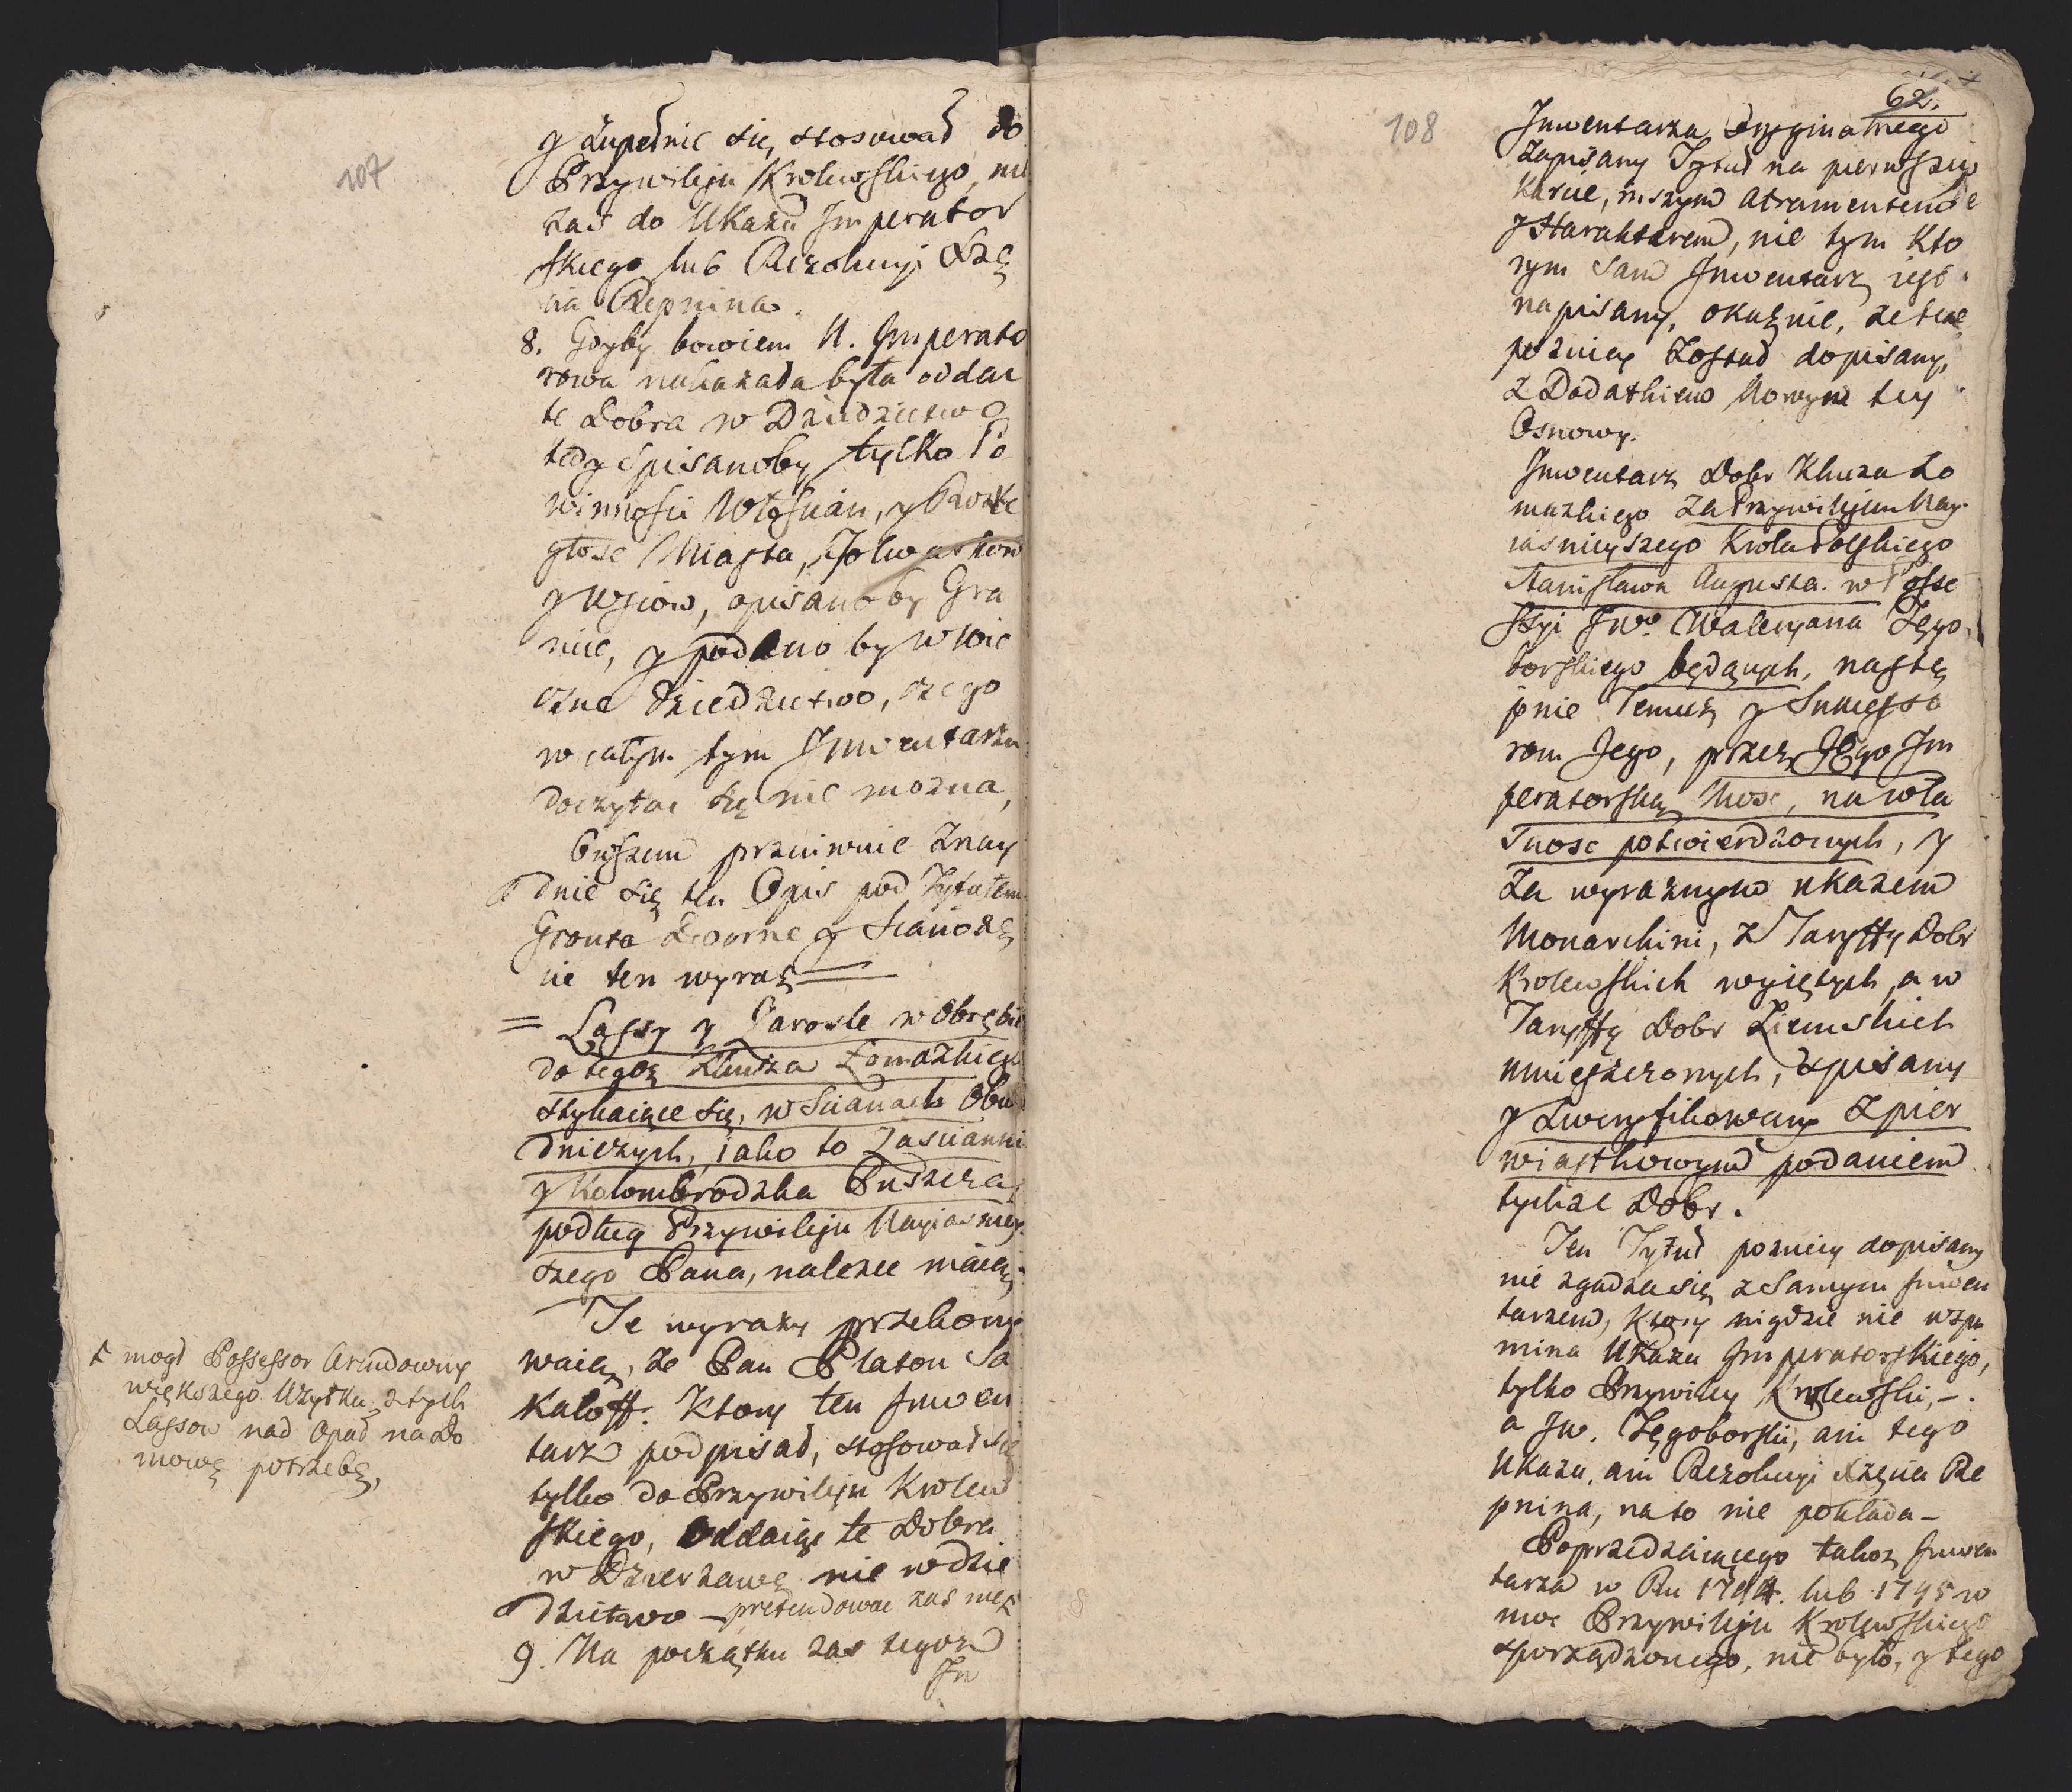 107
y zupełnie się stosował do
Przywileju Krolewskiego, nie
zas do Ukazu Imperator
skiego lub Rezolucyi Xżę
cia Repnina.
8. Gdyby bowiem N. Imperato
rowa nakazała była oddac
te Dobra w Dziedzictwo
tedy spisanoby tylko Po
winnosci Włościan, y Rozle
głosc Miasta, Folwarkow
y Wsiow, opisanoby Gra
nice, y podano by w wie
czne dziedzictwo, czego
w całym tym Inwentarzu
doczytac się nie mozna,
Owszem przeciwnie znay
dnie się ten Opis pod Tytułem
Grunta Dworne y Sianożę
cie ten wyraz =
= Lassy y Zarosle w Obrębie
do tegoż Klucza Łomazkiego
stykaiące się, w Scianach Obu
dniczych, iako to Zascianki
y Kolombrodzka Puszcza,
podług Przywileju Nayiasniey
szego Pana, nalezec maią,
Te wyrazy przekony
waią, że Pan Platon So
kaloff. Ktory ten Inwen
tarz podpisał, stosował się
tylko do Przywileju Krolew
skiego, Oddaiąc te Dobra
w Dzierzawę nie w dzie
dzictwo — pretendowac zas nie
9. Na początku zas tegoz
In
mogł Possessor Arendowny
większego Uzytku z tych
Lassow nad Opał na Do
mową potrzebę,
62.
108
Inwentarza Oryginalnego
zapisany Tytuł na pierwszey
karcie, inszym atramentem
y Harakterem, nie tym kto
rym sam Inwentarz iest
napisany, okaznie, że ten
pozniey został dopisany,
z Dodatkiem Nowym tey
Osnowy.
Inwentarz Dobr Klucza Ło
mazkiego za Przywilejem Nay
iasnieyszego Krola Polskiego
Stanisława Augusta. w Posse
ssyi JWo. Waleryana Tęgo
borskiego będących, nastę
pnie Temuż y Sukcesso
rom Jego, przez Jego Im
peratorską Mosc, na wła
snosc potwierdzonych, y
za wyraznym ukazem
Monarchini, z Taryffy Dobr
Krolewskich wyiętych, a w
Taryffę Dobr Ziemskich
umieszczonych, spisany
y zweryfikowany z pier
wiastkowym podaniem
tychze Dobr.
Ten Tytuł pozniey dopisany
nie zgadza się z samym Inwen
tarzem, Ktory nigdzie nie wspo
mina Ukazu Imperatorskiego,
tylko Przywiley Krolewski, —
a JW. Tęgoborski, ani tego
Ukazu, ani Rezolucyi Xżęcia Re
pnina, na to nie pokłada —
Poprzedzaiącego takoz Inwen
tarza w Ru 1794. lub 1795 w
moc Przywileju Krolewskiego
sporządzonego, nie było, y tego